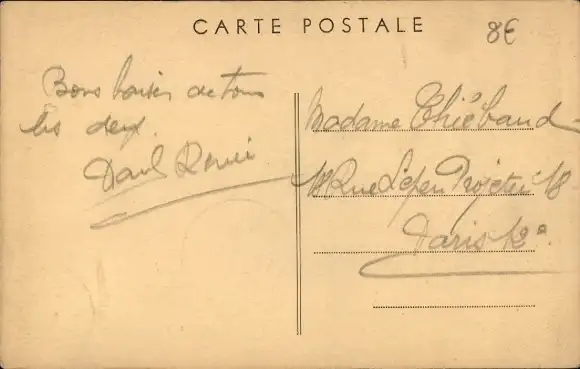 CARTE POSTALE
8€
Bons baisers de tous
les deux.
Paul Renée
Madame Thiébaud
Rue
Paris 12e.